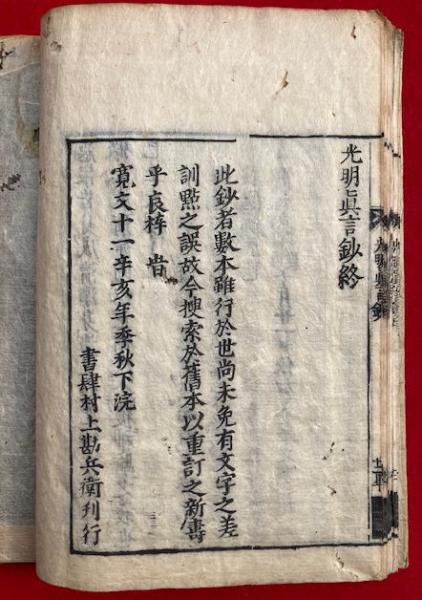 光明眞言鈔終
此鈔者數本雖行於世尚未免有文字之差
訓㸃之誤故今搜索於舊本以重訂之新壽
乎良梓旹
寛文十一辛亥年季秋下浣
書肆村上勘兵衛刋行